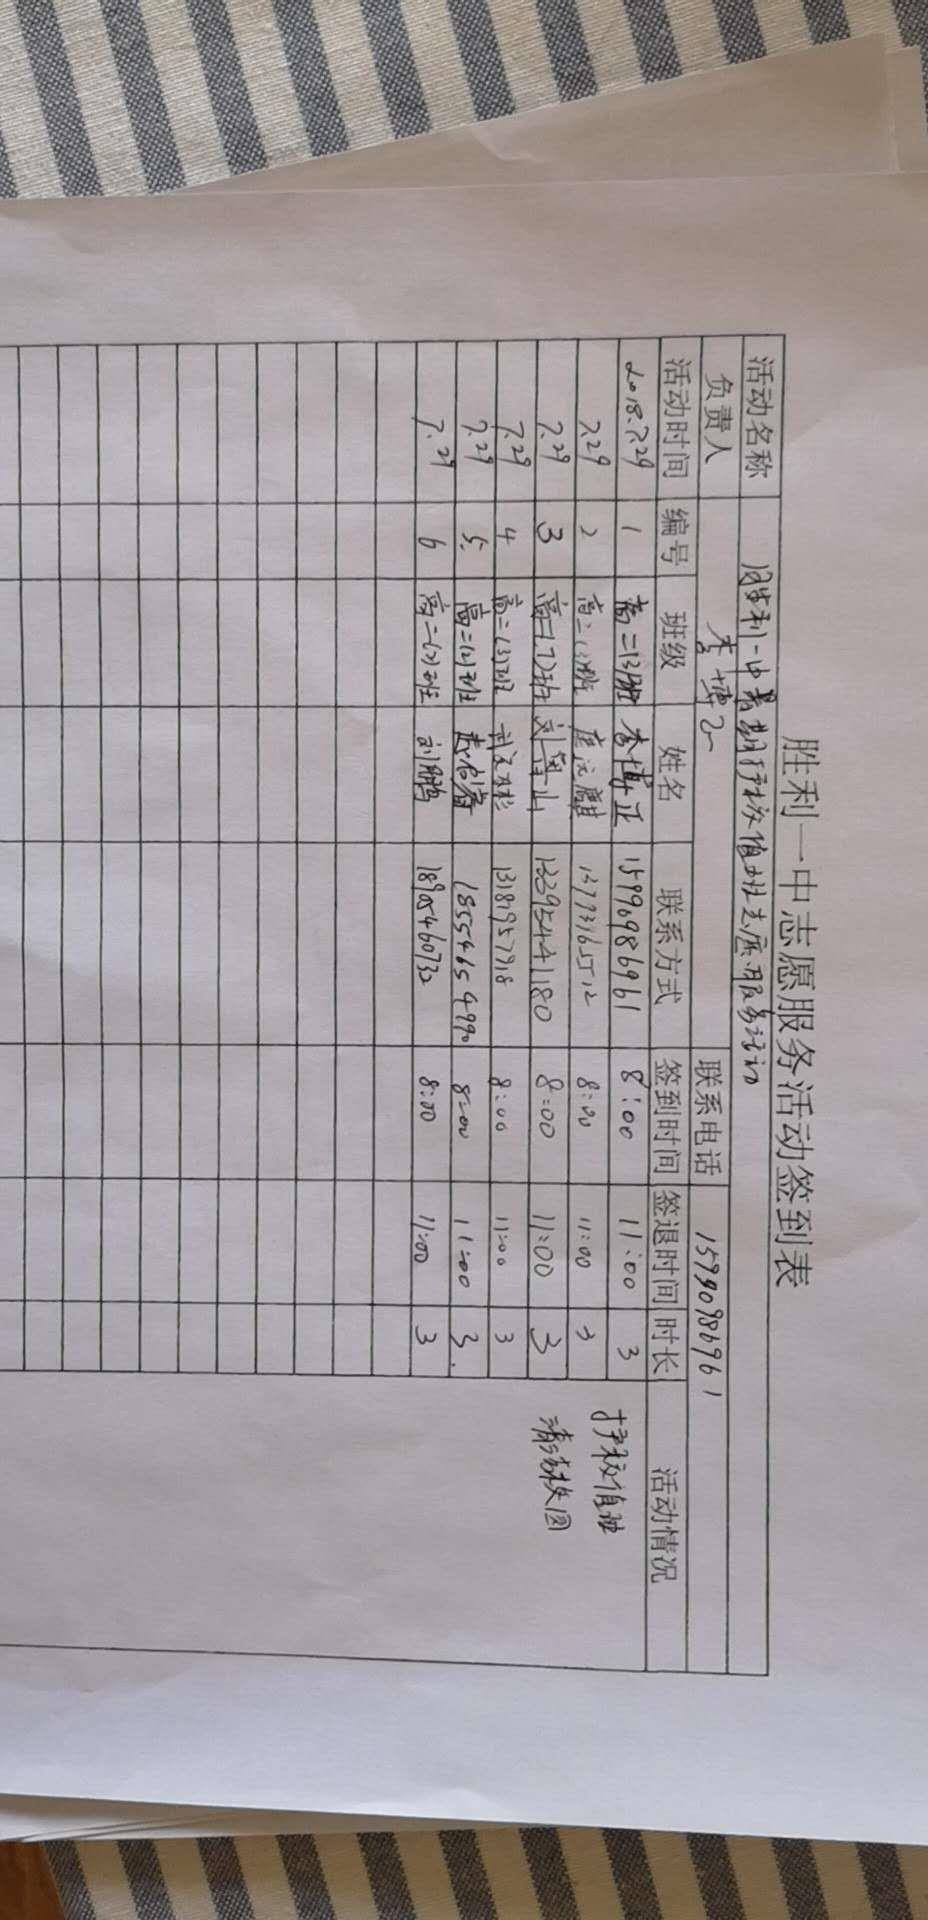 胜利一中志愿服务活动签到表
活动名称 胜利一中暑期护校值班志愿服务活动
负责人 李博正 联系电话 15990986961
活动时间 编号 班级 姓名 联系方式 签到时间 签退时间 时长 活动情况
2018.7.29 1 高二13班 李博正 15990986961 8:00 11:00 3 护校值班
7.29 2 高二13班 8:00 11:00 3 清洁校园
7.29 3 13395441180 8:00 11:00 3
7.29 4 高二(3)班 8:00 11:00 3
7.29 5. 高二(2)班 18554654990 8:00 11:00 3.
7.29 6 高二(2)班 刘鹏 18905460732 8:00 11:00 3